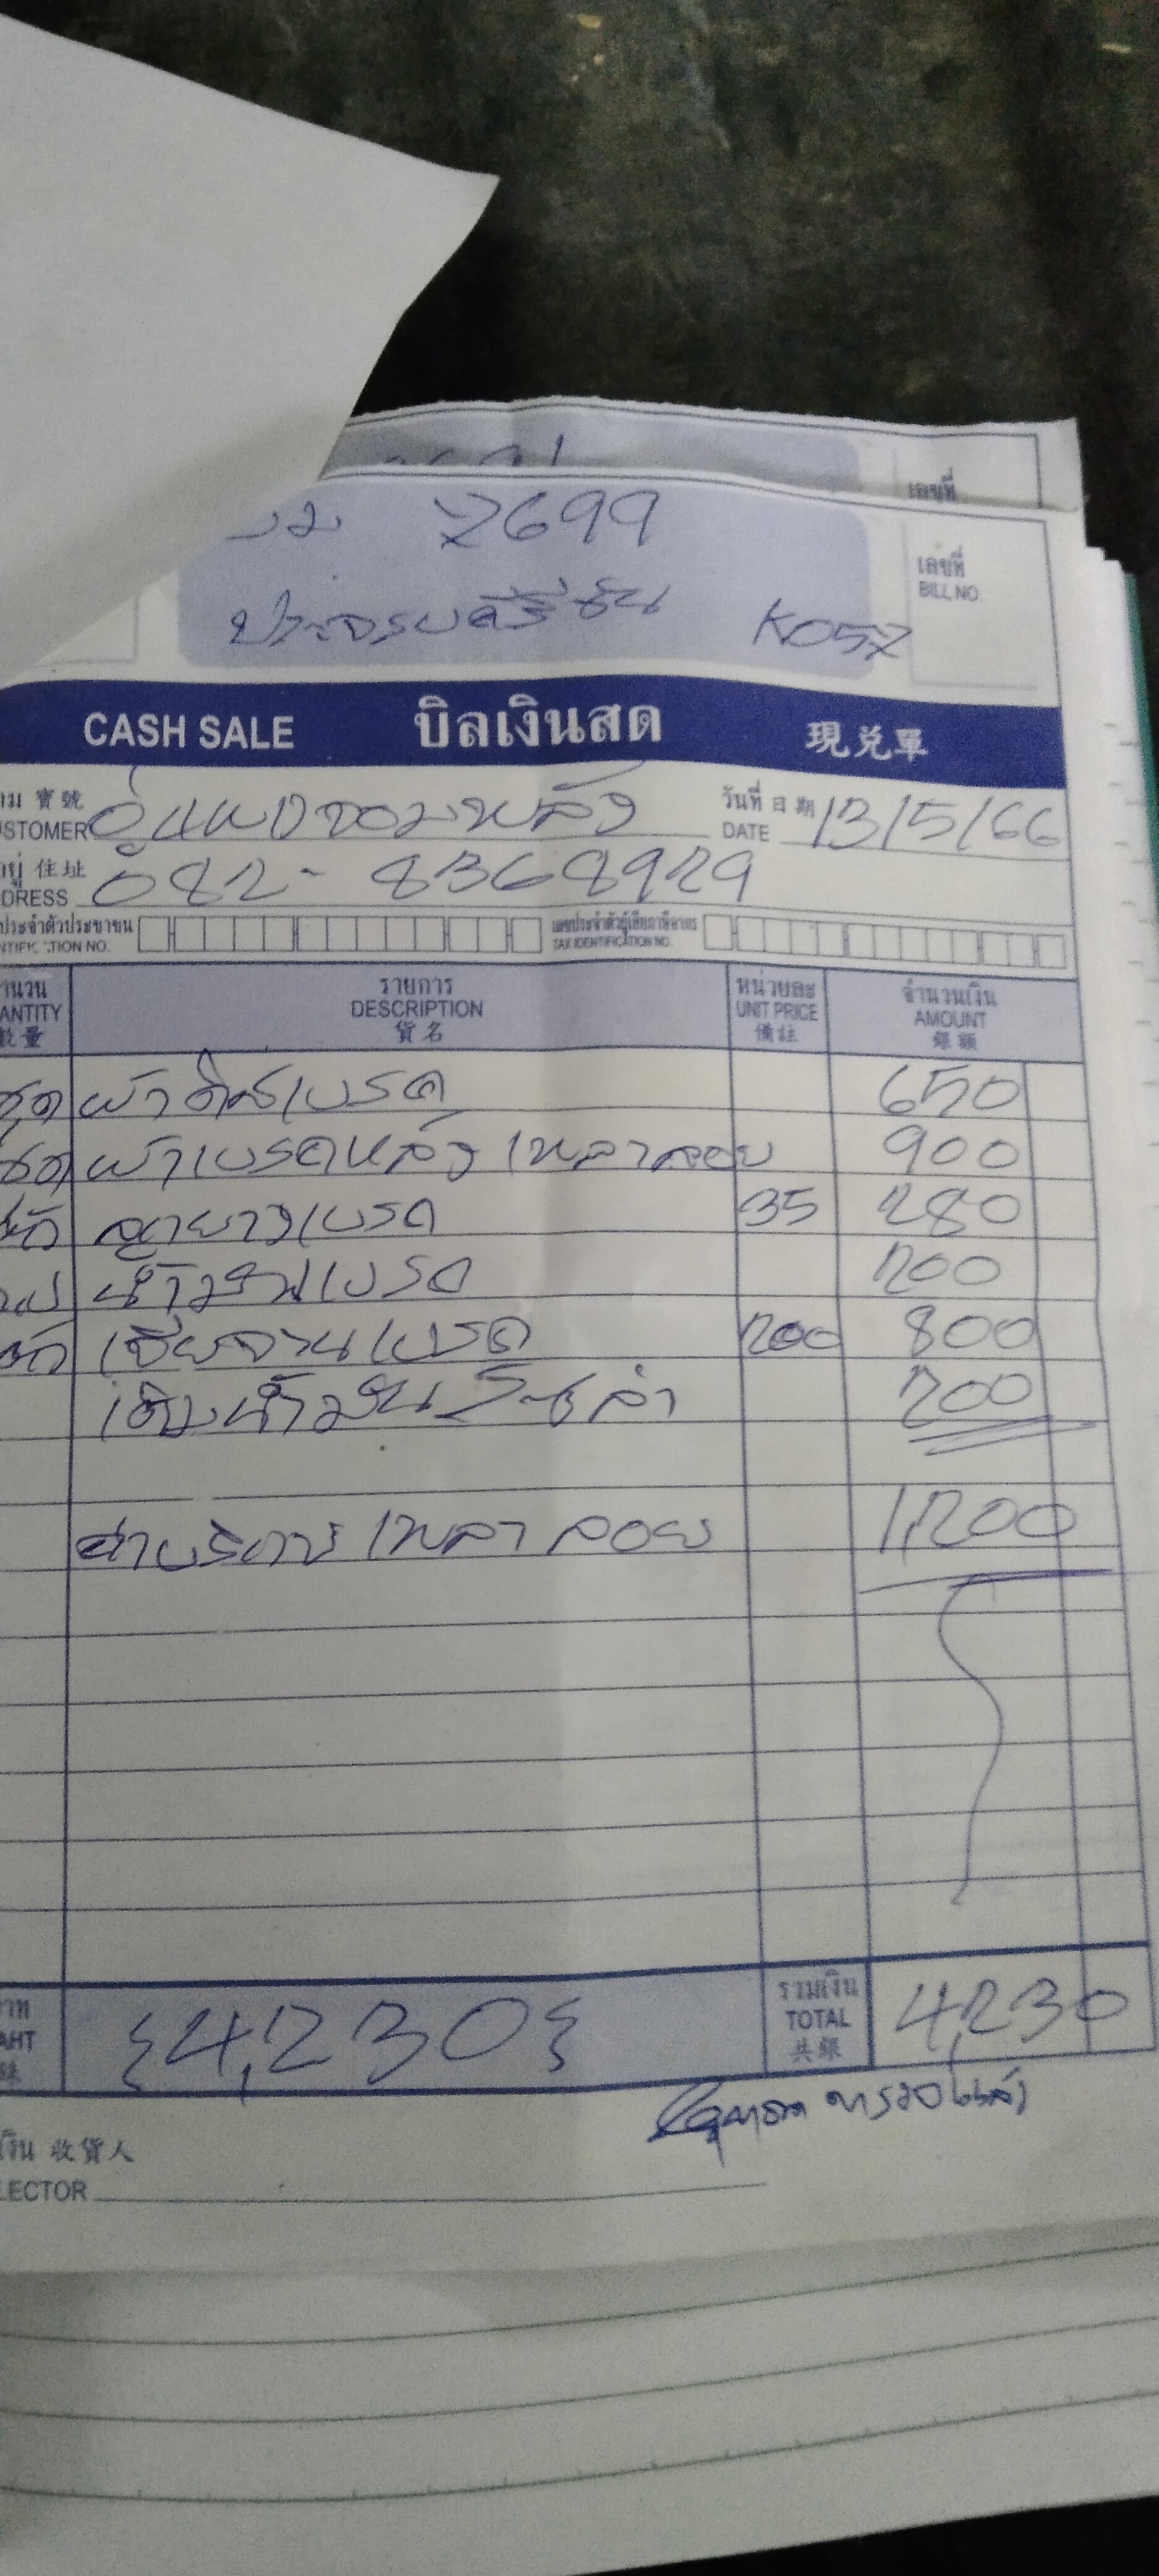 เลขที่
2699
เลขที่
BILL NO.
ประจวบศรีชัน K052
CASH SALE บิลเงินสด 現兑單
าม 寶號
USTOMER อู่แพงจอมพลัง วันที่ 日期 DATE 13/5/66
อยู่ 住址
DRESS 082-8368929
ประจำตัวประชาชน เลขประจำตัวผู้เสียภาษีอากร
NTIFICATION NO. TAX IDENTIFICATION NO.
ำนวน รายการ หน่วยละ จำนวนเงิน
ANTITY DESCRIPTION UNIT PRICE AMOUNT
數量 貨名 備註 銀額
ชุด ผ้าดิสเบรค 650
ชุด ผ้าเบรคหลัง เพลาลอย 900
ตัว ลูกยางเบรค 35 280
น้ำมันเบรค 200
เจียจานเบรค 200 800
เติมน้ำมัน 200
ค่าบริการ เพลาลอย 1,200
าท
AHT {4,230} รวมเงิน TOTAL 共銀 4,230
ตรวจแล้ว
งิน 收貨人
LECTOR